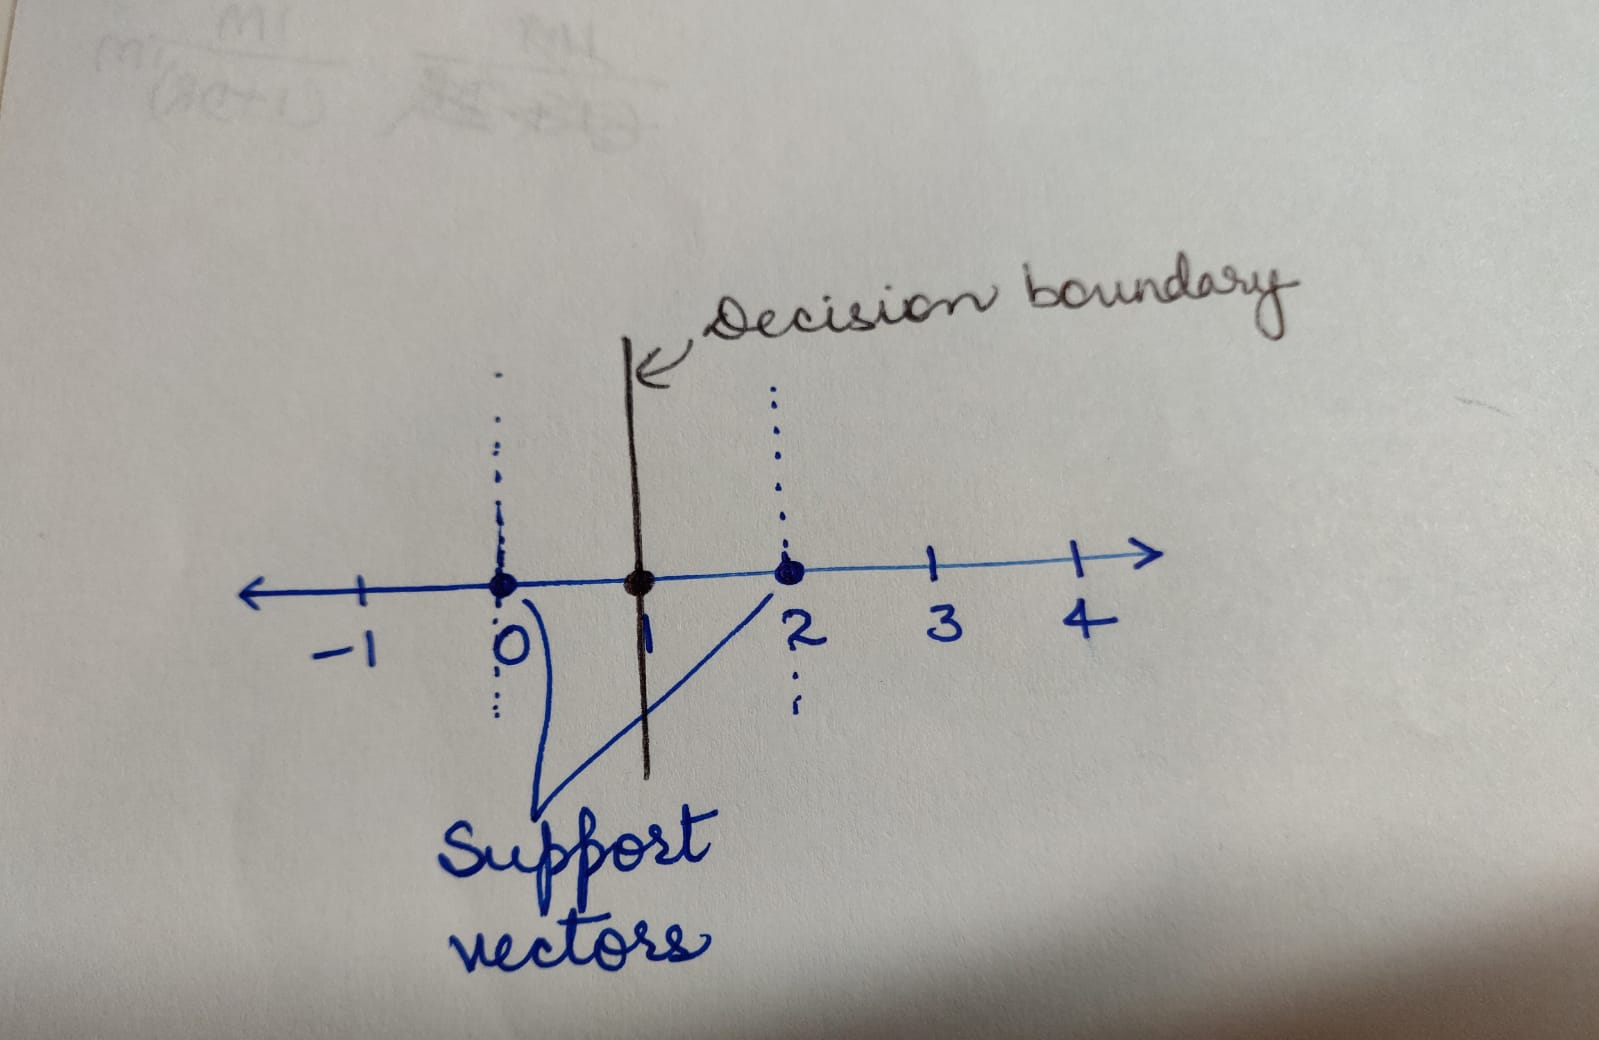 Decision boundary
-1 0 1 2 3 4
Support
vectors